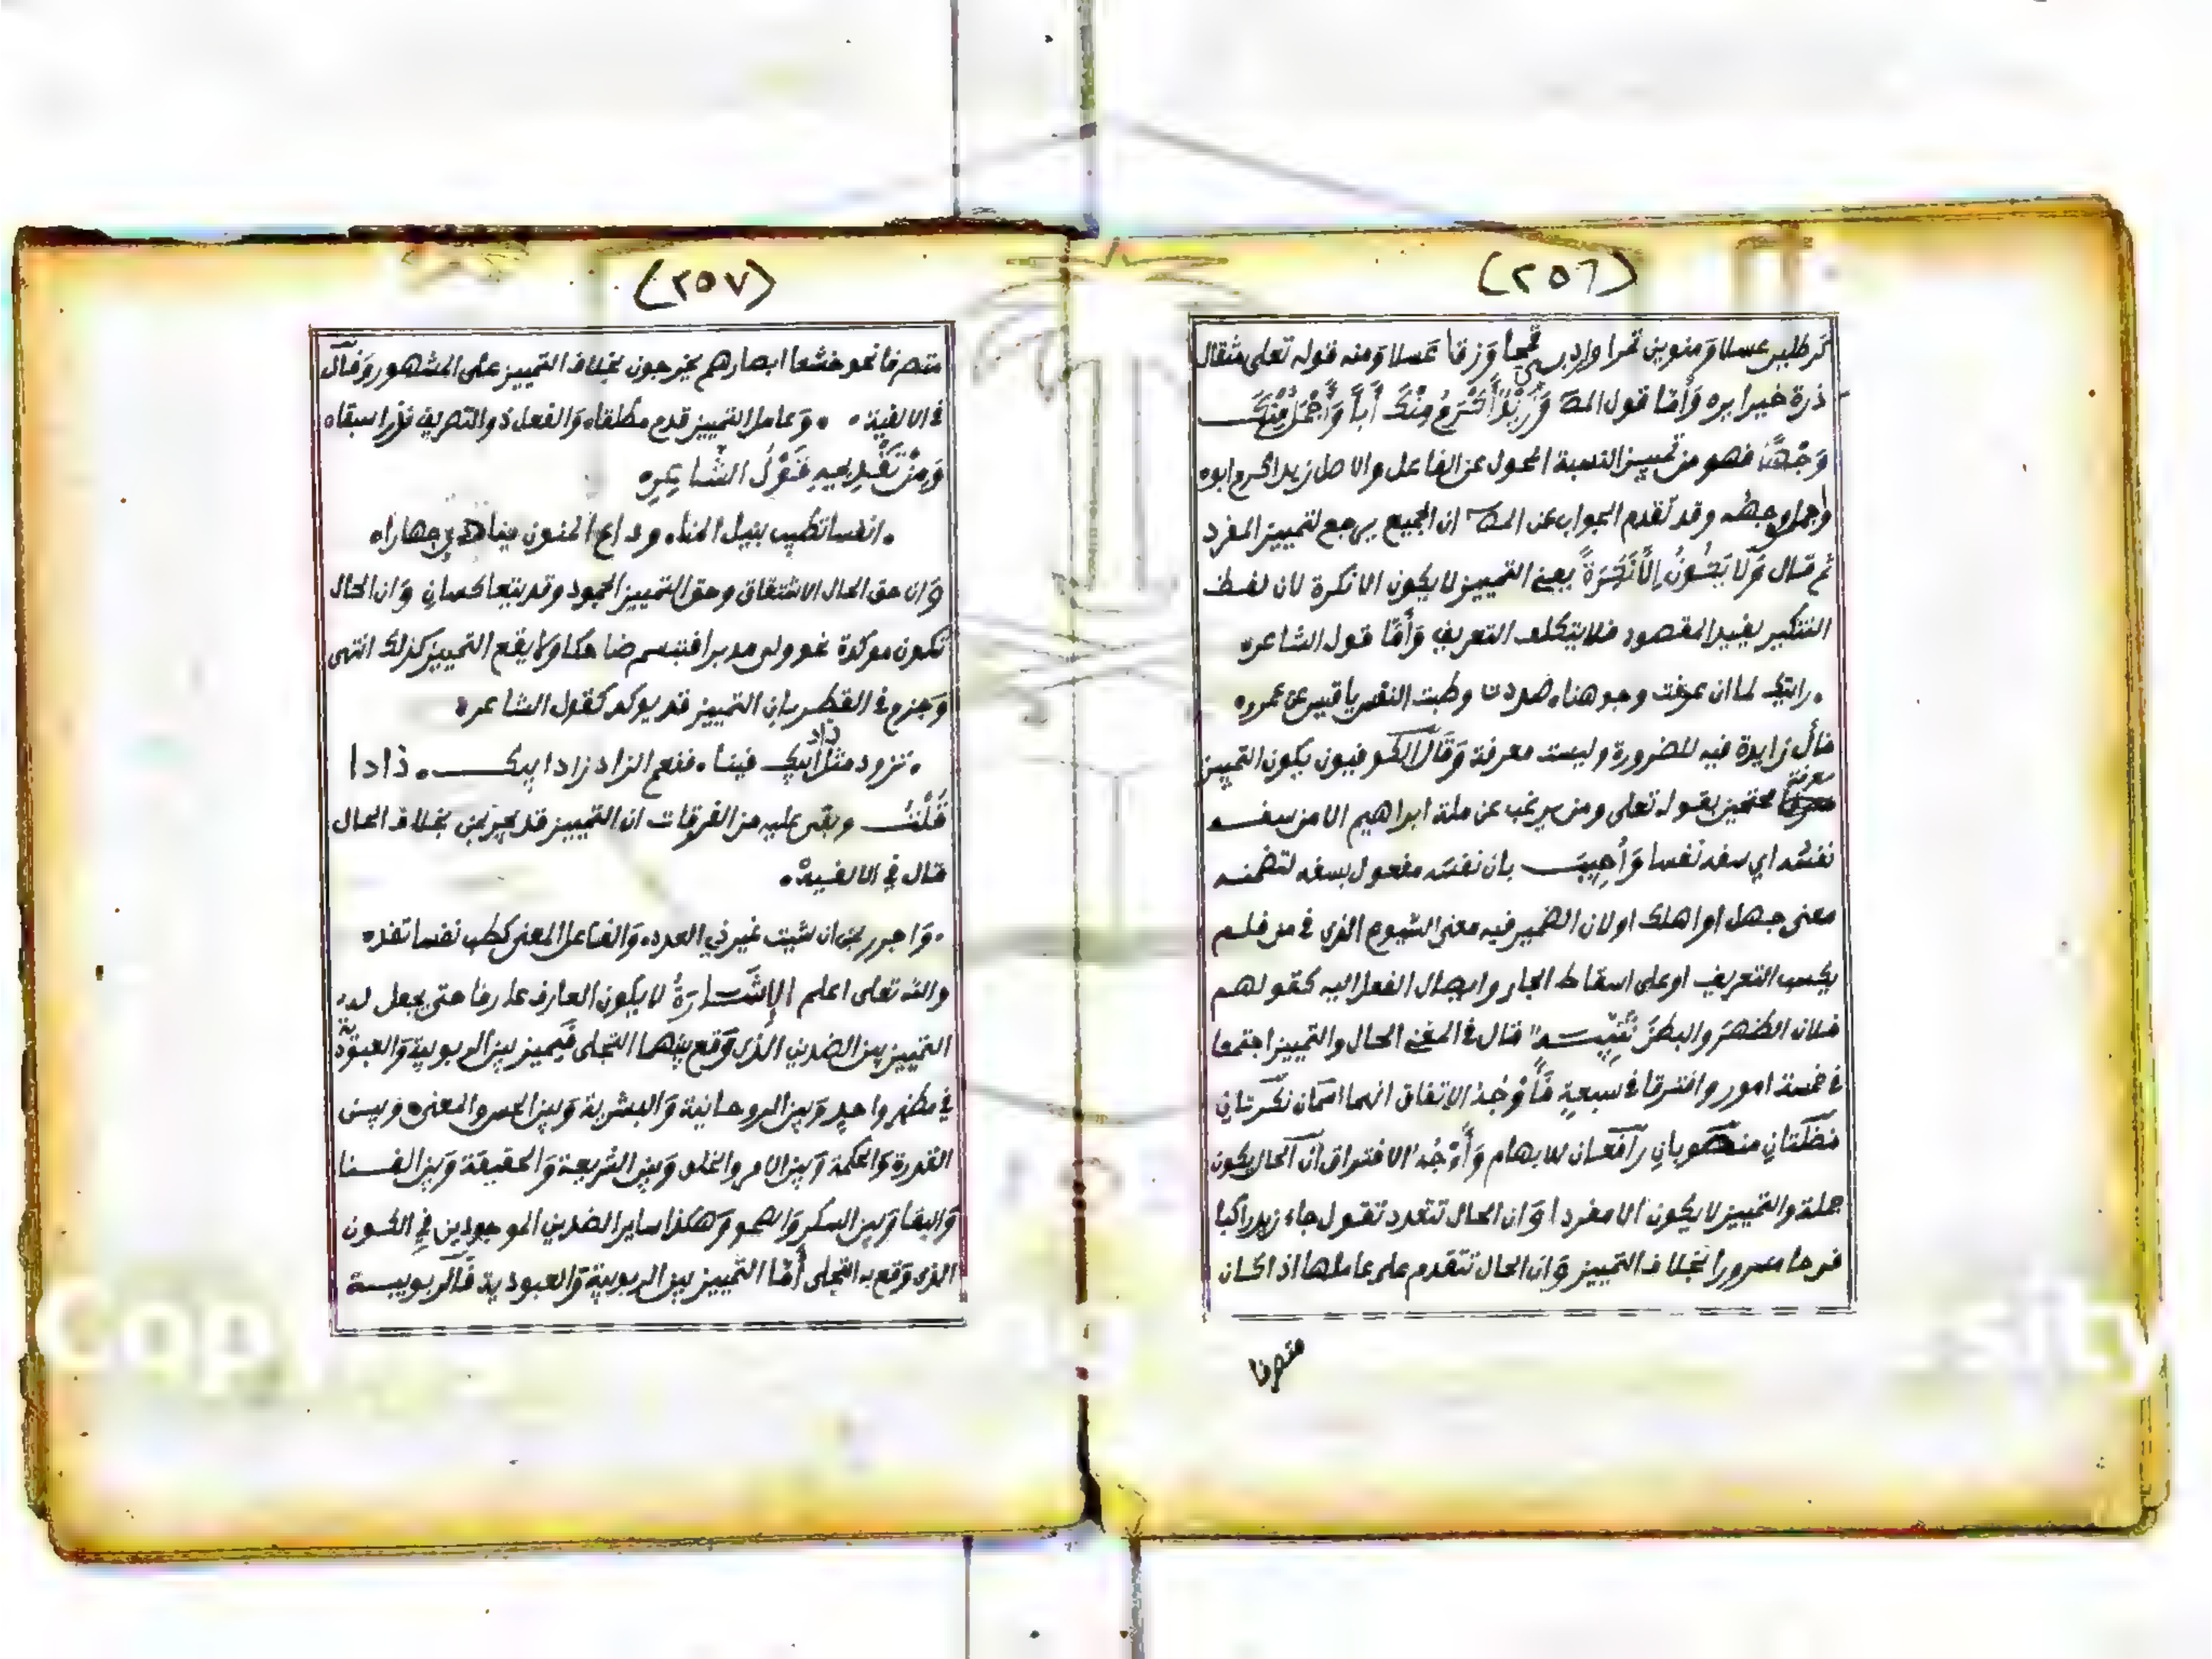 (٢٥٦)
كرطلين عسلا ومنوين تمرا واردب قمحا وزقا عسلا ومنه قوله تعلى مثقال
ذرة خيرا يره وأما قول المصـ وزيد أكرم منك أبا وأجمل منك
وجها فهو من تمييز النسبة المحول عن الفاعل والاصل زيد اكرم ابوه
واجمل وجهه وقد تقدم الجواب عن المصـ ان الجميع يرجع لتمييز المفرد
ثم قال ولا يكون إلا نكرة يعني التمييز لا يكون الا نكرة لان لفظ
التنكير يفيد المقصود فلا يتكلف التعريف وأما قول الشاعر
رايتك لما ان عرفت وجوهنا صددت وطبت النفس يا قيس عن عمرو
فأل زايدة فيه للضرورة وليست معرفة وقال الكوفيون يكون التمييز
معرفة محتجين بقوله تعلى ومن يرغب عن ملة ابراهيم الا من سفه
نفسه اي سفه نفسا وأجيب بان نفسه مفعول بسفه لتضمنه
معنى جهل او اهلك او لان الضمير فيه معنى الشيوع الذي في من فلم
يكسب التعريف او على اسقاط الجار وايصال الفعل اليه كقولهم
فلان الظهر والبطن تنبيه قال في المغني الحال والتمييز اجتمعا
في خمسة امور وافترقا في سبعة فأوجه الاتفاق انهما اسمان نكرتان
فضلتان منصوبان رافعان للابهام وأوجه الافتراق ان الحال يكون
جملة والتمييز لا يكون الا مفردا وان الحال تتعدد تقول جاء زيد راكبا
فرحا مسرورا بخلاف التمييز وان الحال تتقدم على عاملها اذا كان
متصرفا
(٢٥٧)
متصرفا نحو خشعا ابصارهم يخرجون بخلاف التمييز على المشهور وقال
في الالفية وعامل التمييز قدم مطلقا والفعل ذو التصريف نزرا سبقا
ومن تقديمه قول الشاعر
انفسا تطيب بنيل المنا وداع المنون ينادي جهارا
وان حق الحال الاشتقاق وحق التمييز الجمود وقد يتعاكسان وان الحال
تكون موكدة نحو ولى مدبرا فتبسم ضاحكا ولا يقع التمييز كذلك انتهى
وجزم في القطر بان التمييز قد يوكد كقول الشاعر
تزود مثل زاد ابيك فينا فنعم الزاد زاد ابيك زادا
قلت وبقي عليه من الفرقات ان التمييز قد يجر بمن بخلاف الحال
قال في الالفية
واجرر بمن ان شيت غير ذي العدد والفاعل المعنى كطب نفسا تفد
والله تعلى اعلم الإشارة لا يكون العارف عارفا حتى يجعل له
التمييز بين الضدين الذي وقع بينهما التجلى فيميز بين الربوبية والعبودية
في مظهر واحد وبين الروحانية والبشرية وبين الحس والمعنى وبين
القدرة والحكمة وبين الامر والخلق وبين الشريعة والحقيقة وبين الفنا
والبقا وبين السكر والصحو وهكذا ساير الضدين الموجودين في الكون
الذي وقع به التجلى أما التمييز بين الربوبية والعبودية فالربوبيـة